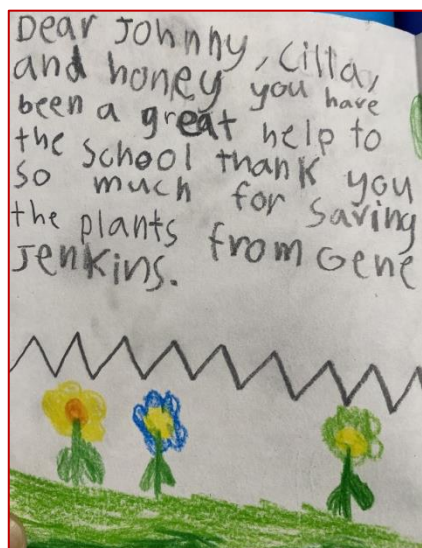 Dear Johnny, Cilla,
and honey you have
been a great help to
the school thank you
so much for saving
the plants from Gene
Jenkins.